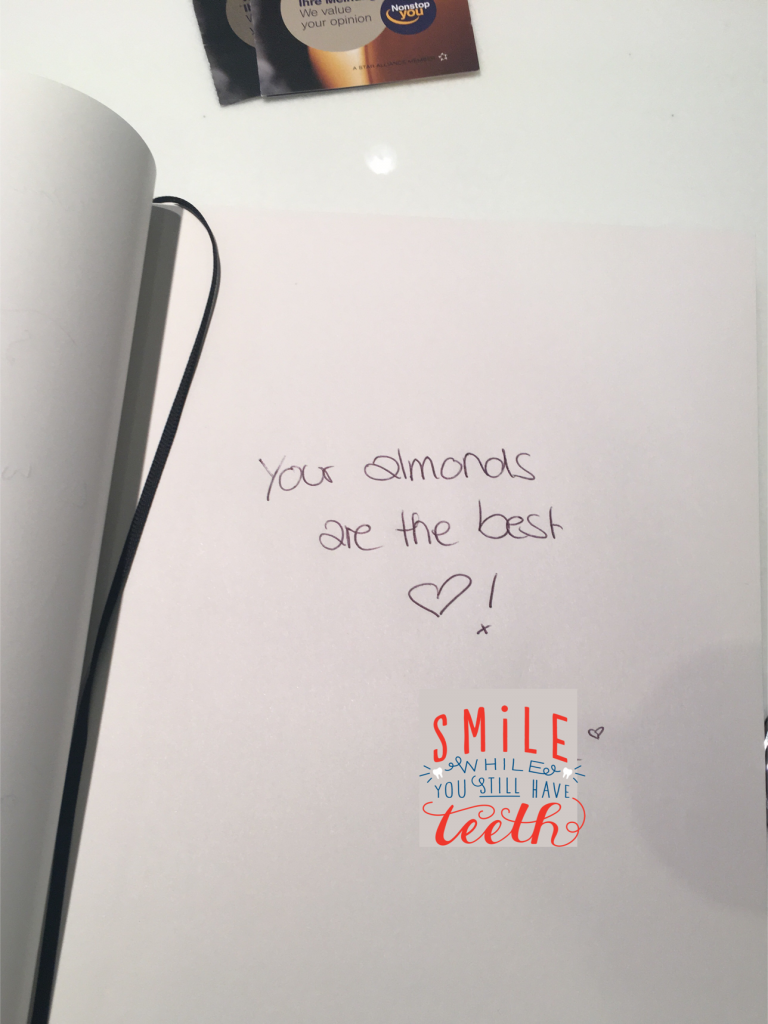 Ihre Meinung
We value
your opinion
Nonstop
you
A STAR ALLIANCE MEMBER
your almonds
are the best
♡!
x
SMiLE
WHILE
YOU STILL HAVE
teeth